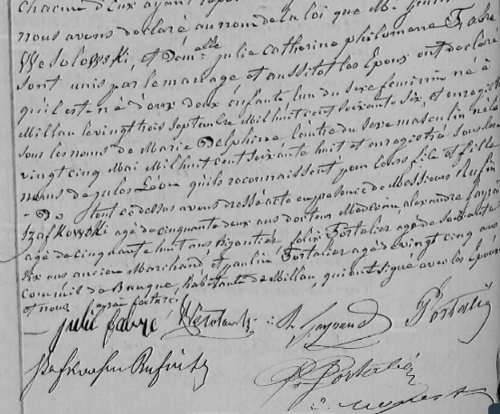 chacun d'eux ayant
nous avons déclaré au nom de la loi que Mr
Wesolowski, et Demelle julie Catherine philomène Fabre
sont unis par le mariage et aussitôt les Epoux ont déclaré
qu'il est né deux deux enfants lun du sexe feminin né à
Millau le vingt trois Septembre Mil huit cent soixante six, et enregistré
sous les noms de Marie Delphine lautre du sexe masculin né le
vingt cinq Mai Mil huit cent soixante huit et enregistré sous les
noms de jules Léon quils reconnaissent pour leurs fils et fille
- De tout ce dessus avons dressé acte en présence de Messieurs Rufin
Szafkowski agé de cinquante deux ans docteur Medecin, alexandre
agé de cinquante huit ans Bijoutier, felix Portalier agé de soixante
dix ans ancien Marchand et paulin Portalier agé de vingt cinq ans
Commis de Banque, habitants de Millau, qui ont signé avec les Epoux
et nous après lecture.
julie fabre Wesolowski Portalier
Szafkowski Rufin P. Portalier